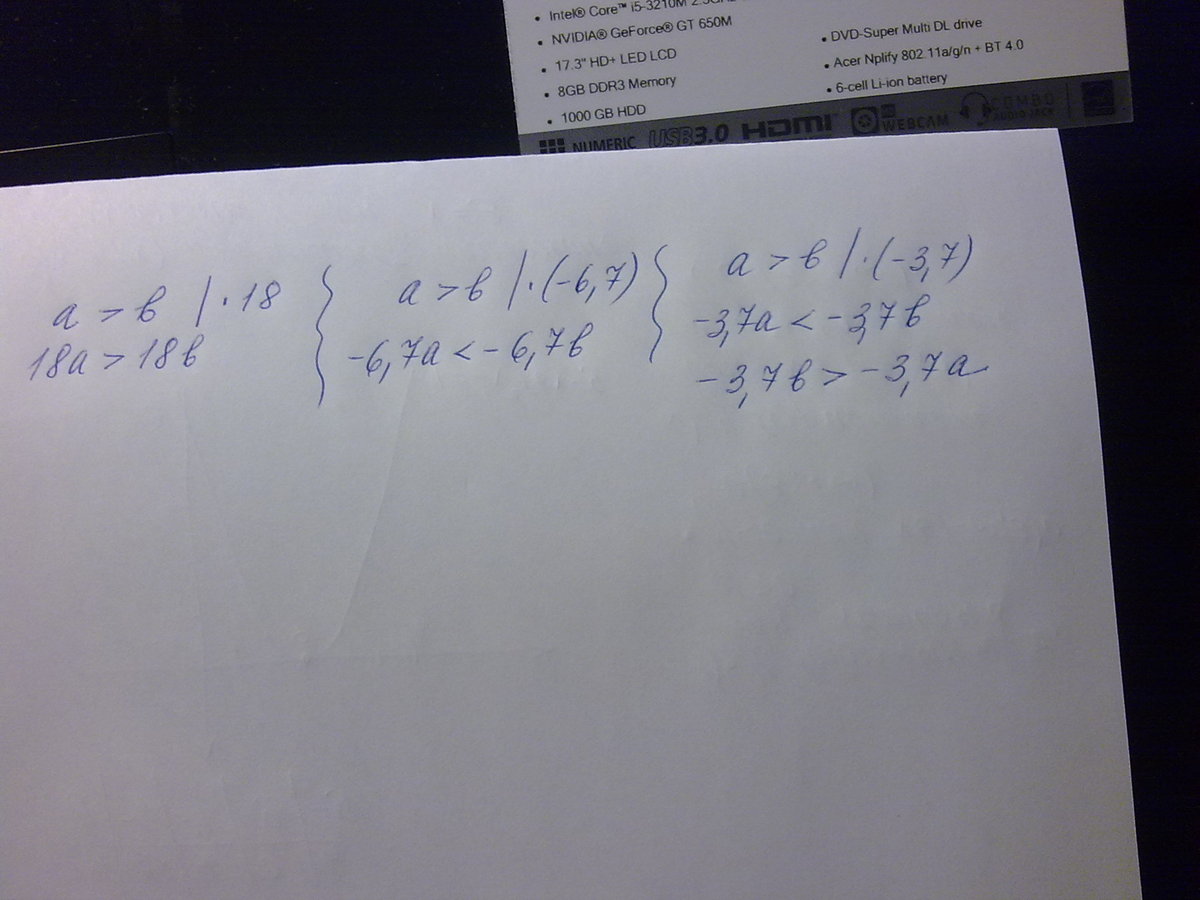 Intel® Core™ i5-3210M
NVIDIA® GeForce® GT 650M
17.3" HD+ LED LCD
8GB DDR3 Memory
1000 GB HDD
DVD-Super Multi DL drive
Acer Nplify 802.11a/g/n + BT 4.0
6-cell Li-ion battery
NUMERIC USB3.0 HDMI WEBCAM COMBO AUDIO JACK
a > b | · 18
18a > 18b
a > b | · (-6,7)
-6,7a < -6,7b
a > b | · (-3,7)
-3,7a < -3,7b
-3,7b > -3,7a